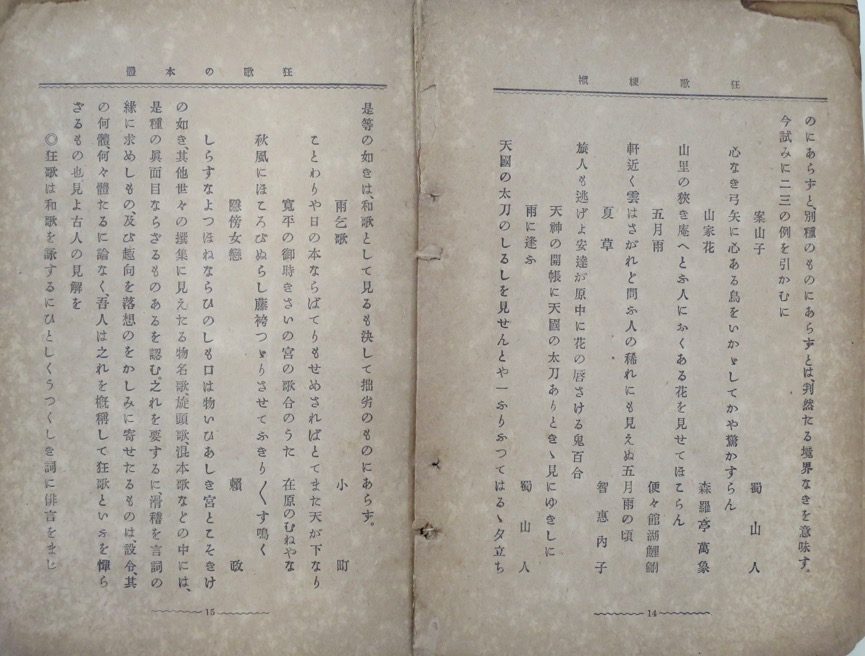 狂歌梗概
のにあらずと、別種のものにあらずとは、判然たる境界なきを意味す。
今試みに二三の例を引かむに
案山子　蜀山人
心なき弓矢に心ある鳥をいかゞしてかや驚かすらん
山家花　森羅亭萬象
山里の狹き庵へとふ人におくある花を見せてほこらん
五月雨　便々館湖鯉鮒
軒近く雲はさがれど問ふ人の稀れにも見えぬ五月雨の頃
夏草　智惠內子
旅人も逃げよ安達が原中に花の唇さける鬼百合
天神の開帳に天國の太刀ありときゝ見にゆきしに
雨に逢ふ　蜀山人
天國の太刀のしるしを見せんとや一ふりふつてはるゝ夕立ち
14
狂歌の本體
是等の如きは、和歌として見るも決して拙劣のものにあらず。
雨乞歌　小町
ことわりや日の本ならばてりもせめさればとてまた天が下なり
寬平の御時きさいの宮の歌合のうた　在原のむねやな
秋風にほころびぬらし藤袴つゞりさせてふきり〲す鳴く
戀傍女戀　賴政
しらすなよつほねならひのしも口は物いひあしき宮とこそきけ
の如き、其他世々の撰集に見えたる物名歌、旋頭歌、混本歌などの中には、
是種の眞面目ならざるものあるを認む、之れを要するに、滑稽を言詞の
緣に求めしもの、及び趣向を落想のをかしみに寄せたるものは、設令、其
の何體何々體たるに論なく吾人は之れを槪稱して狂歌といふを憚ら
ざるもの也見よ古人の見解を
◎狂歌は和歌を詠ずるにひとしくうつくしき詞に俳言をまじ
15